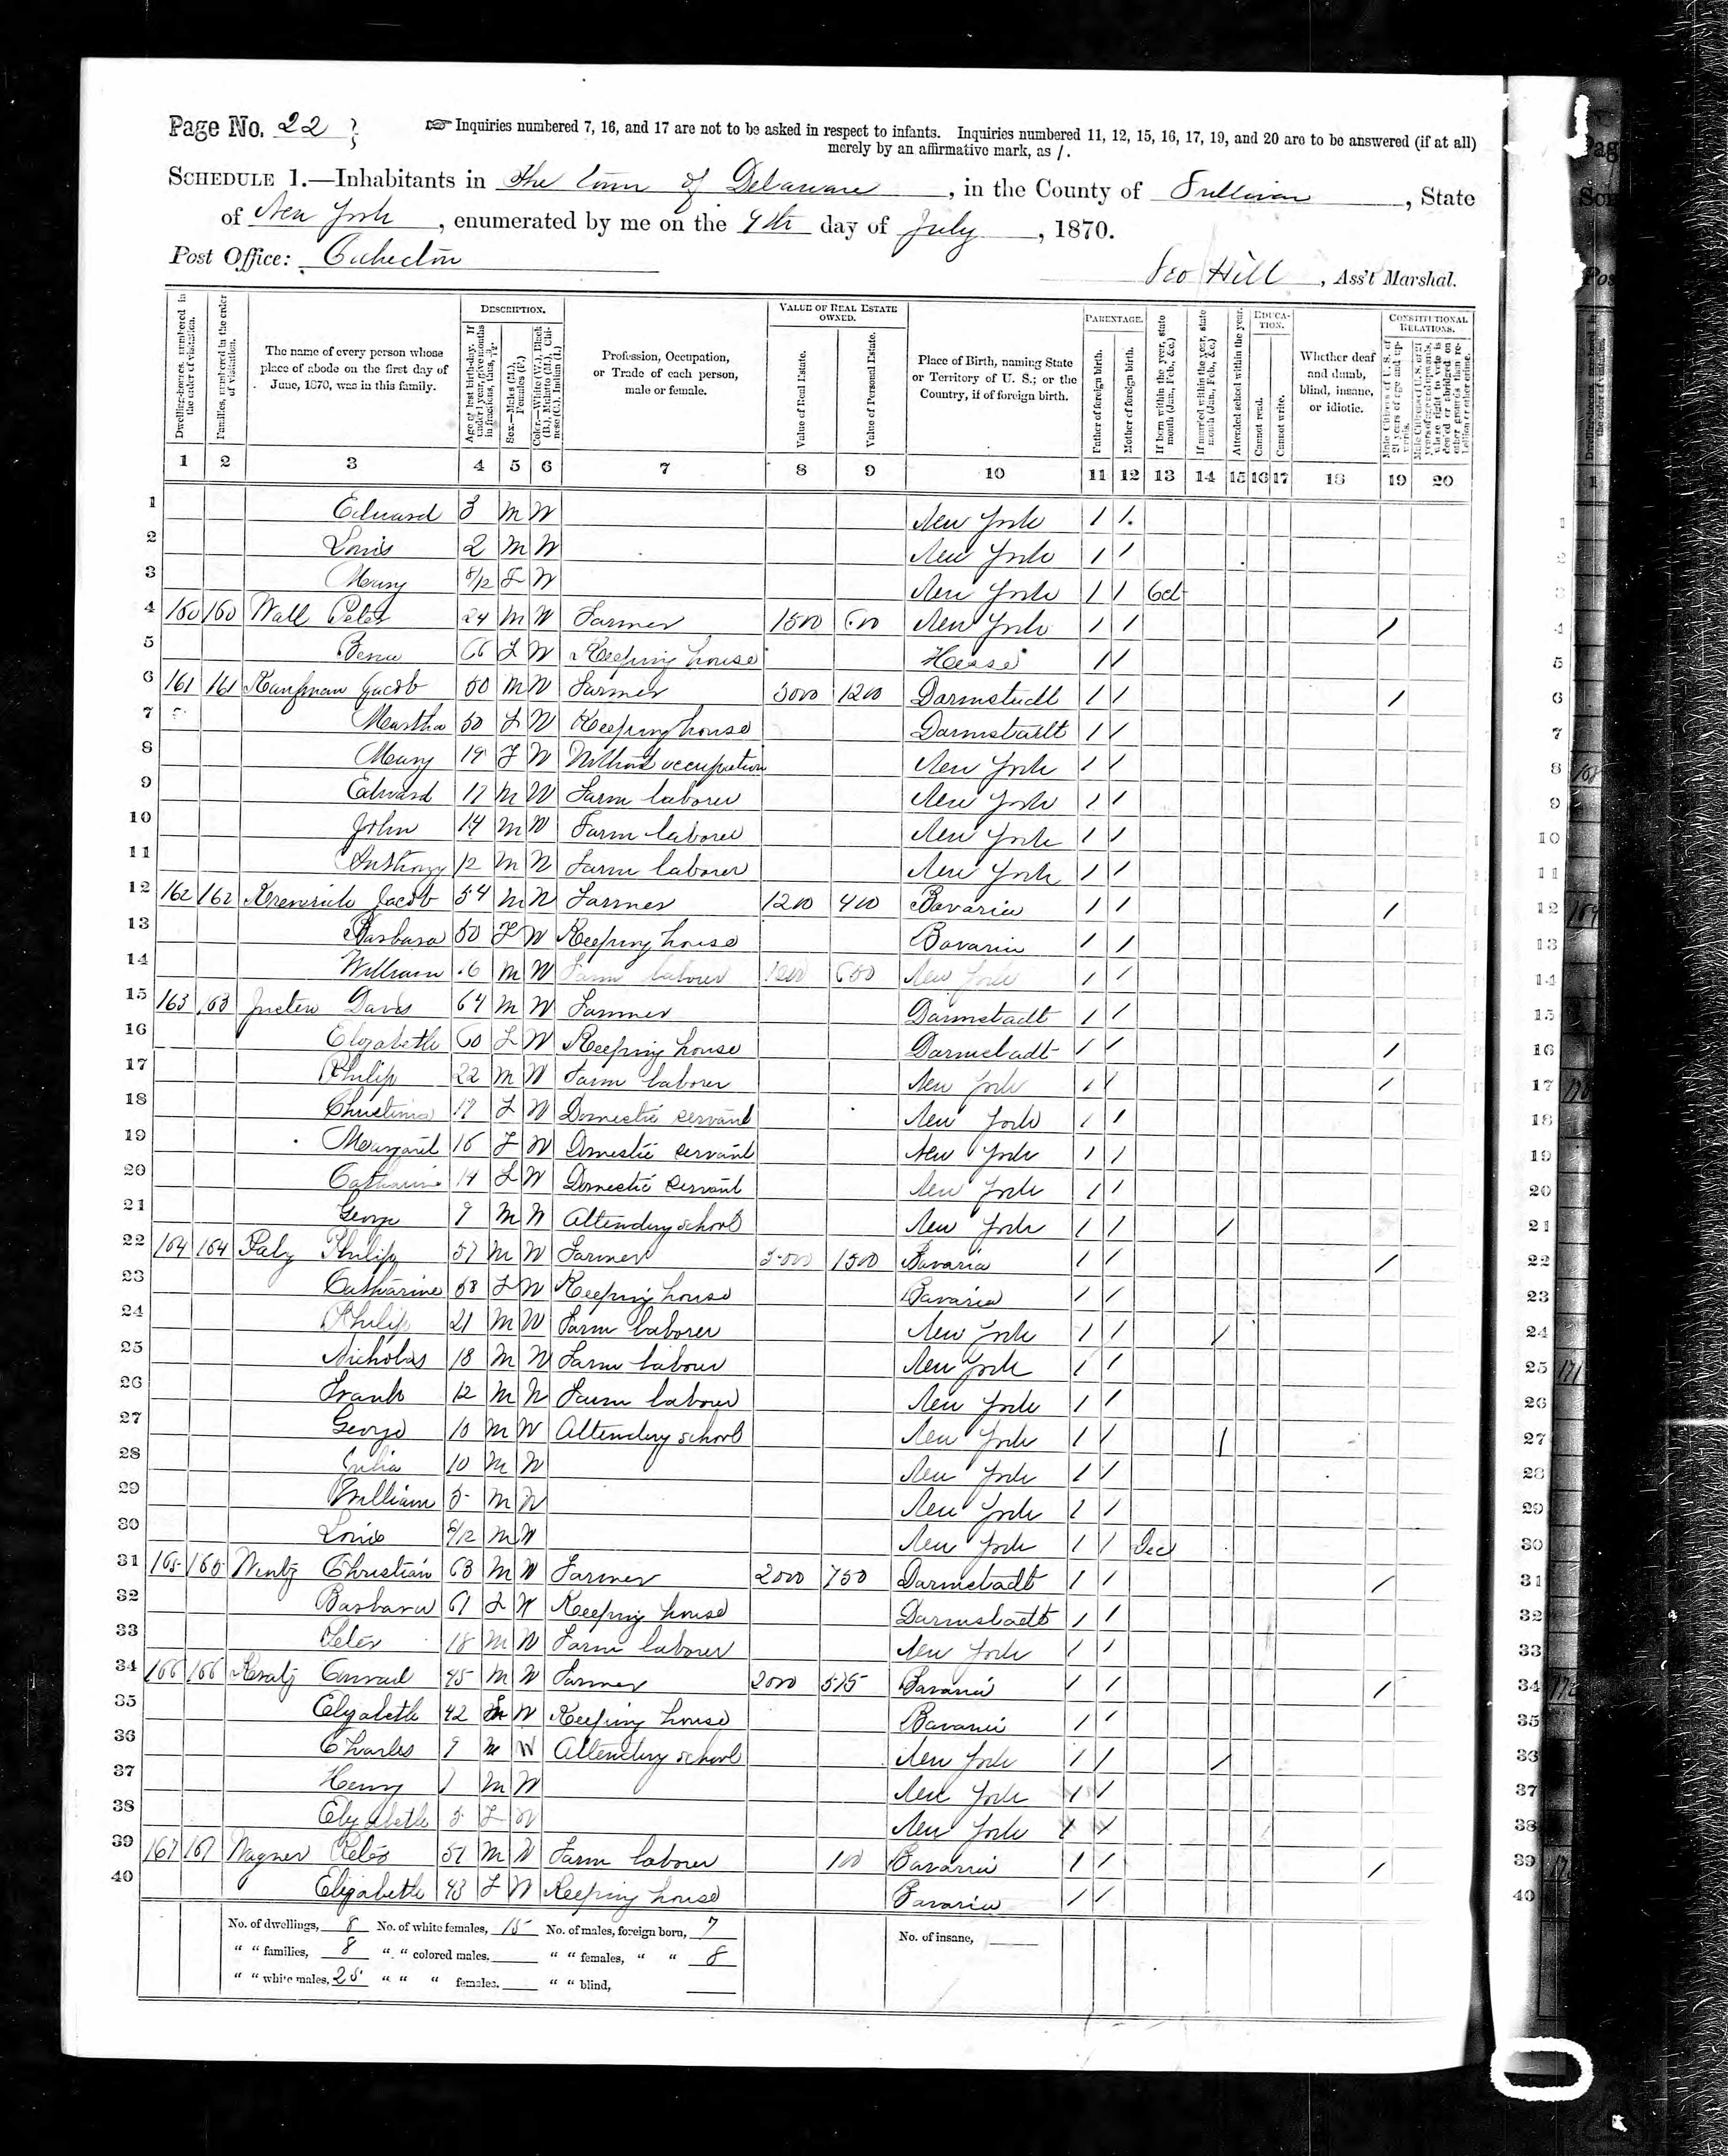 Page No. 22
Inquiries numbered 7, 16, and 17 are not to be asked in respect to infants. Inquiries numbered 11, 12, 15, 16, 17, 19, and 20 are to be answered (if at all)
merely by an affirmative mark, as /.
SCHEDULE 1.—Inhabitants in the town of Delaware, in the County of Sullivan, State
of New York, enumerated by me on the 9th day of July, 1870.
Post Office: Cochecton
Geo Hill, Ass't Marshal.
DESCRIPTION. VALUE OF REAL ESTATE OWNED. PARENTAGE. EDUCATION. CONSTITUTIONAL RELATIONS.
Dwelling-houses, numbered in the order of visitation.
Families, numbered in the order of visitation.
The name of every person whose place of abode on the first day of June, 1870, was in this family.
Age at last birth-day. If under 1 year, give months in fractions, thus, 3/12.
Sex.—Males (M.), Females (F.)
Color.—White (W.), Black (B.), Mulatto (M.), Chinese (C.), Indian (I.)
Profession, Occupation, or Trade of each person, male or female.
Value of Real Estate.
Value of Personal Estate.
Place of Birth, naming State or Territory of U. S.; or the Country, if of foreign birth.
Father of foreign birth.
Mother of foreign birth.
If born within the year, state month (Jan., Feb., &c.)
If married within the year, state month (Jan., Feb., &c.)
Attended school within the year.
Cannot read.
Cannot write.
Whether deaf and dumb, blind, insane, or idiotic.
Male Citizens of U. S. of 21 years of age and upwards.
1 2 3 4 5 6 7 8 9 10 11 12 13 14 15 16 17 18 19 20
1 Edward 3 M W New York / /
2 Louis 2 M W New York / /
3 Mary 8/12 F W New York / / Oct
4 160 160 Wall Peter 24 M W Farmer 1500 600 New York / / /
5 66 F W Keeping house Hesse / /
6 161 161 Kaufman Jacob 50 M W Farmer 3000 1200 Darmstadt / / /
7 Martha 50 F W Keeping house Darmstadt / /
8 Mary 19 F W Without occupation New York / /
9 Edward 17 M W Farm laborer New York / /
10 John 14 M W Farm laborer New York / /
11 Anthony 12 M W Farm laborer New York / /
12 162 162 Jacob 54 M W Farmer 1200 400 Bavaria / / /
13 Barbara 50 F W Keeping house Bavaria / /
14 William 16 M W Farm laborer 1200 600 New York / /
15 163 163 64 M W Farmer Darmstadt / /
16 Elizabeth 60 F W Keeping house Darmstadt / / /
17 Philip 22 M W Farm laborer New York / / /
18 Christina 17 F W Domestic servant New York / /
19 Margaret 16 F W Domestic servant New York / /
20 Catharine 14 F W Domestic servant New York / /
21 George 9 M W Attending school New York / / /
22 164 164 Philip 57 M W Farmer 3000 1500 Bavaria / / /
23 Catharine 58 F W Keeping house Bavaria / /
24 Philip 21 M W Farm laborer New York / / /
25 Nicholas 18 M W Farm laborer New York / /
26 Frank 12 M W Farm laborer New York / /
27 George 10 M W Attending school New York / / /
28 Julia 10 M W New York / /
29 William 5 M W New York / /
30 Louis 6/12 M W New York / / Dec
31 165 165 Wentz Christian 63 M W Farmer 2000 750 Darmstadt / / /
32 Barbara 61 F W Keeping house Darmstadt / /
33 Peter 18 M W Farm laborer New York / /
34 166 166 Kratz Conrad 45 M W Farmer 2000 575 Bavaria / / /
35 Elizabeth 42 F W Keeping house Bavaria / /
36 Charles 9 M W Attending school New York / / /
37 Henry 7 M W New York / /
38 Elizabeth 5 F W New York / /
39 167 167 Wagner Peter 51 M W Farm laborer 100 Bavaria / / /
40 Elizabeth 43 F W Keeping house Bavaria / /
No. of dwellings, 8 No. of white females, 15 No. of males, foreign born, 7 No. of insane,
" " families, 8 " " colored males, " " females, " " 8
" " white males, 25 " " " females, " " blind,